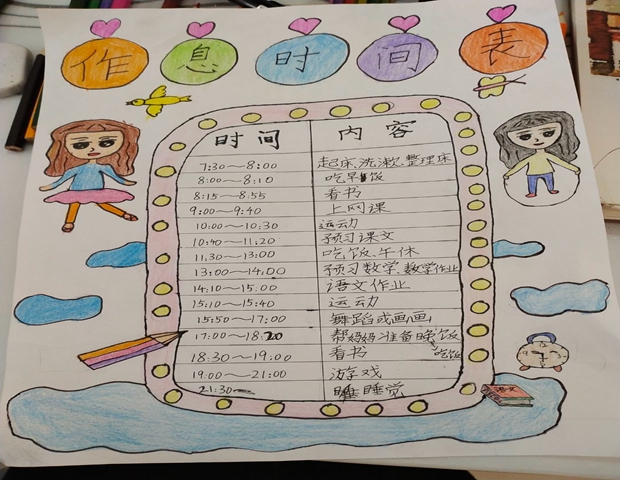 作息时间表
时间 内容
7:30~8:00 起床、洗漱、整理床
8:00~8:10 吃早饭
8:15~8:55 看书
9:00~9:40 上网课
10:00~10:30 运动
10:40~11:20 预习课文
11:30~13:00 吃饭、午休
13:00~14:00 预习数学、数学作业
14:10~15:00 语文作业
15:10~15:40 运动
15:50~17:00 舞蹈或画画
17:00~18:20 帮妈妈准备晚饭
吃饭
18:30~19:00 看书
19:00~21:00 游戏
21:30~ 睡觉